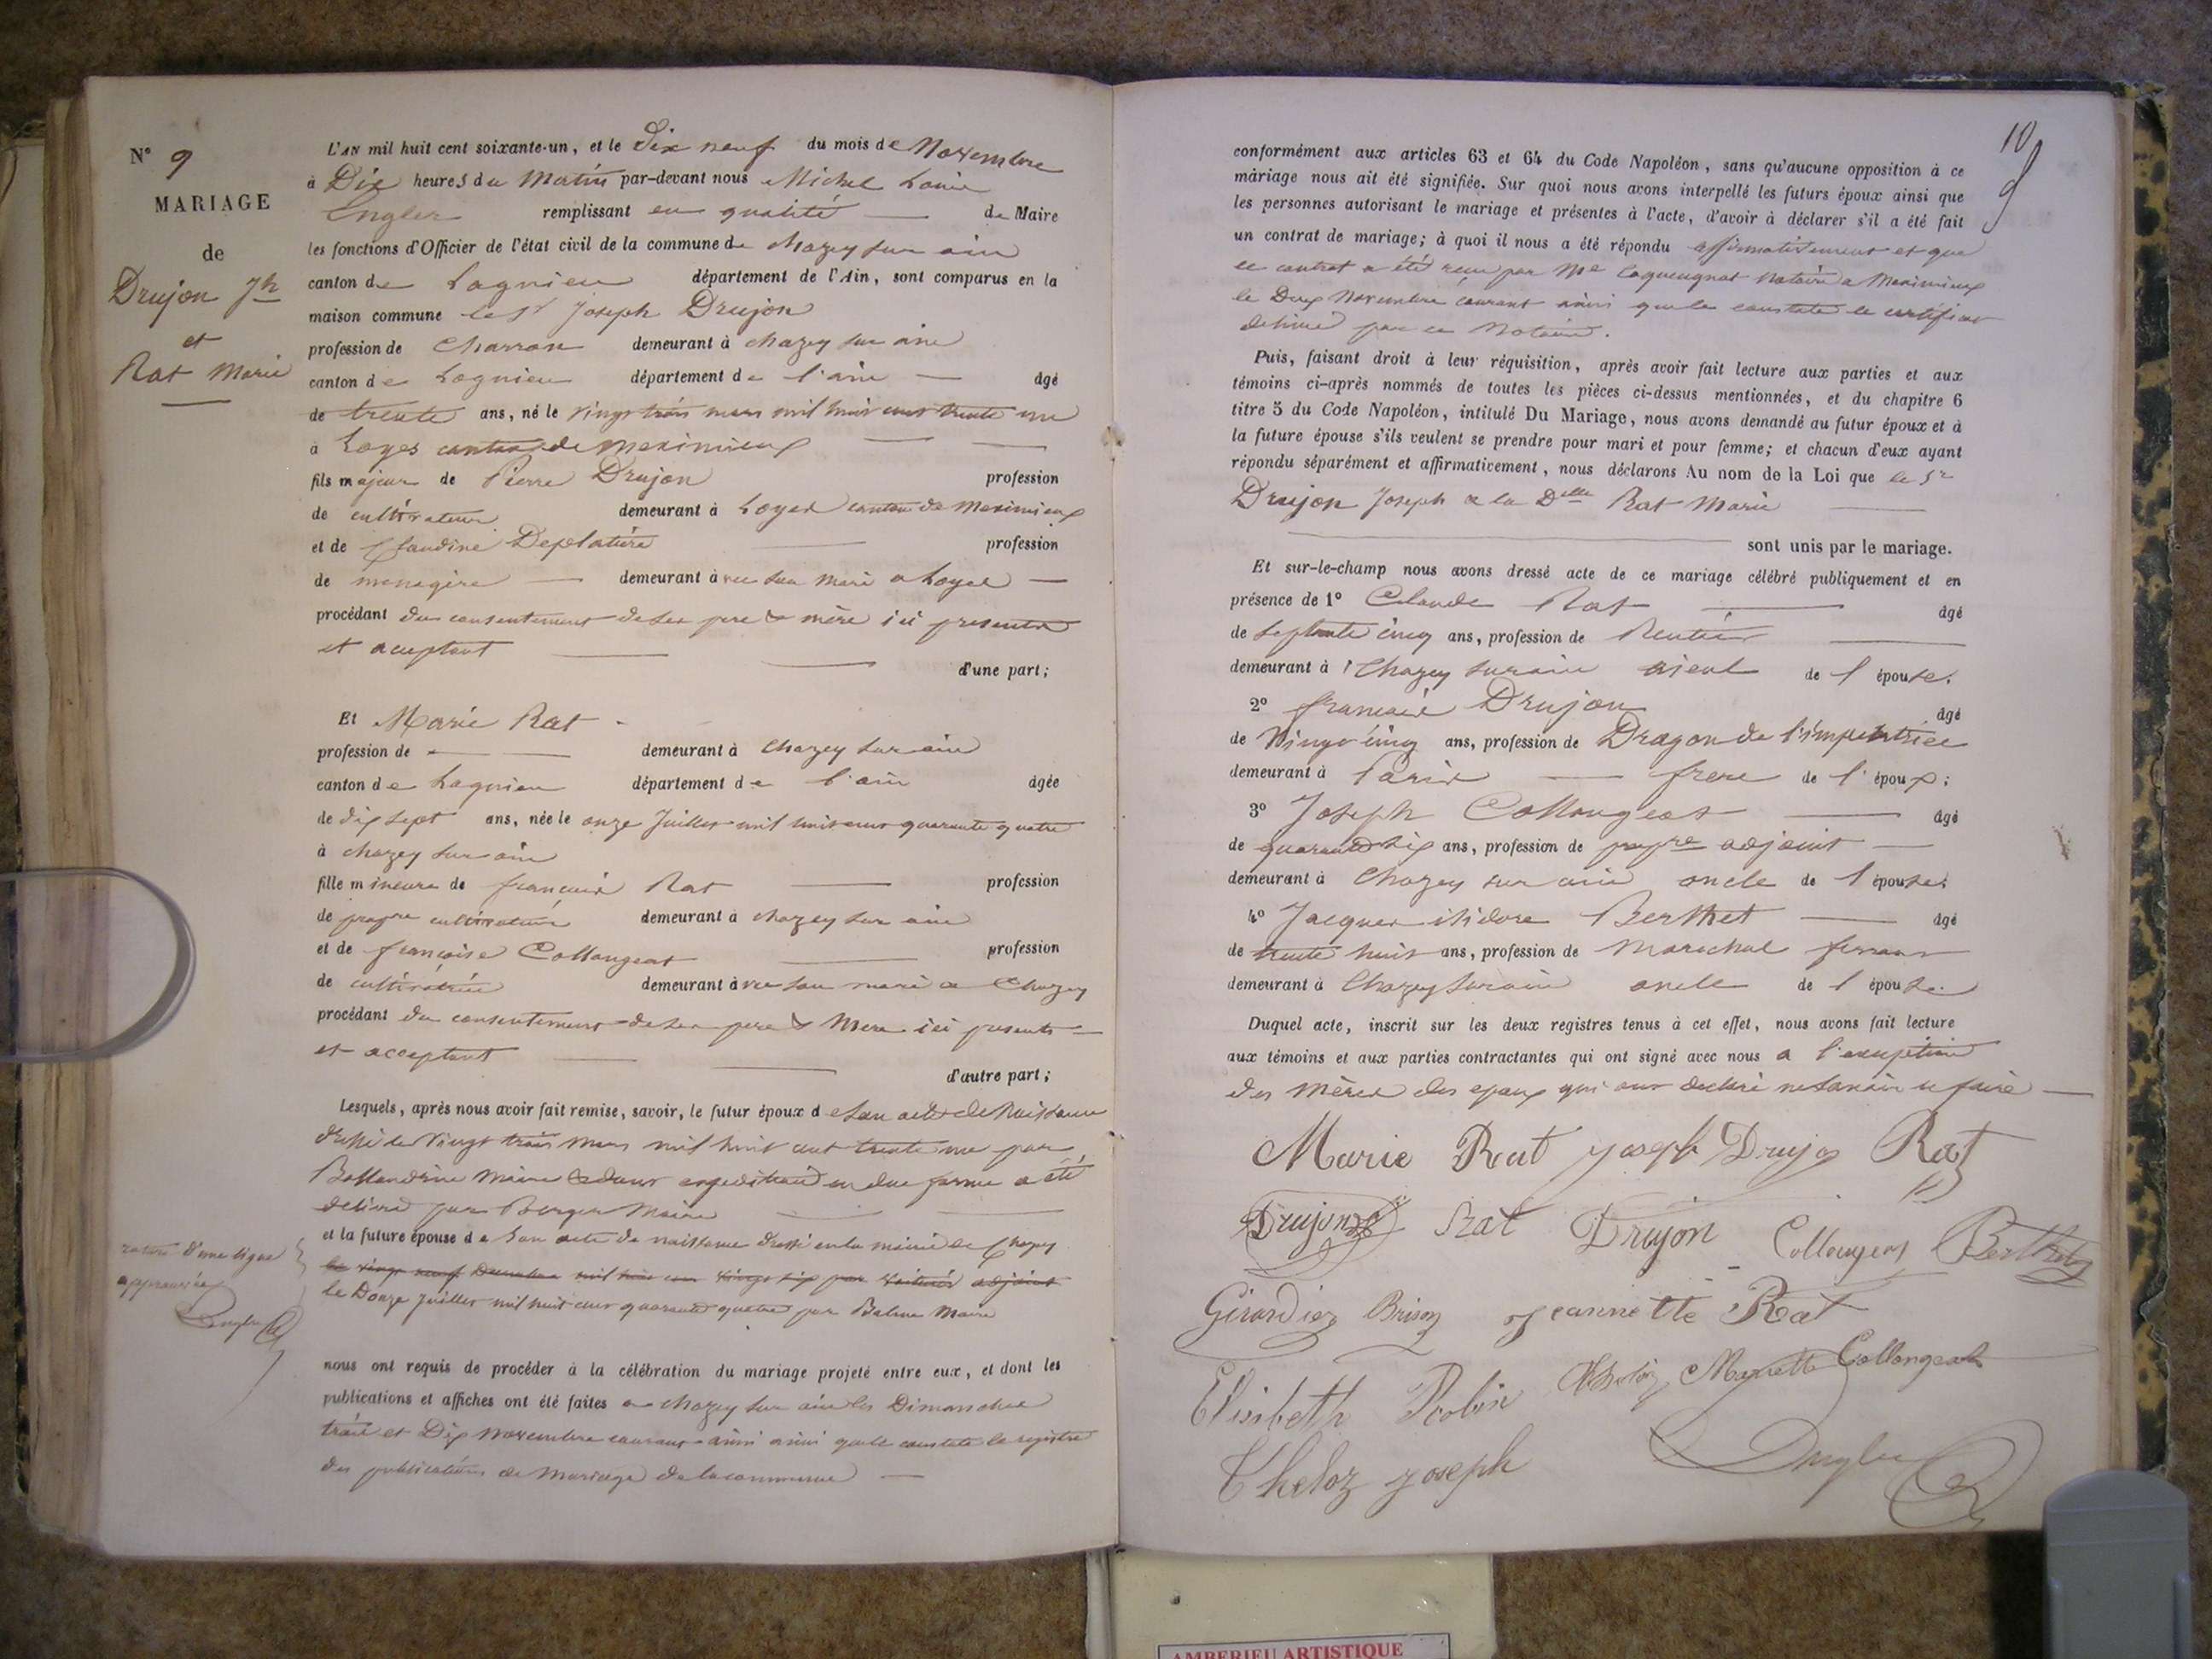 N° 9
MARIAGE
de
Drujon Jh
et
Rat Marie
L'AN mil huit cent soixante-un, et le Dix neuf du mois de Novembre
à Dix heures du Matin par-devant nous Michel Louis
Engler remplissant en qualité de Maire
les fonctions d'Officier de l'état civil de la commune de chazey sur ain
canton de Lagnieu département de l'Ain, sont comparus en la
maison commune le Sr Joseph Drujon
profession de Charron demeurant à chazey sur ain
canton de Lagnieu département de l'ain âgé
de trente ans, né le vingt trois mars mil huit cent trente un
à Loyes canton de meximieux
fils majeur de Pierre Drujon profession
de cultivateur demeurant à Loyes canton de Meximieux
et de Claudine Deplatière profession
de menagère demeurant avec son mari a Loyes
procédant du consentement de ses pere & mère ici presents
et aceptant
d'une part;
Et Marie Rat
profession de demeurant à Chazey sur ain
canton de Lagnieu département de l'ain âgée
de dix sept ans, née le onze Juillet mil huit cent quarante quatre
à chazey sur ain
fille mineure de françois Rat profession
de propre cultivateur demeurant à chazey sur ain
et de françoise Collongeat profession
de cultivatrice demeurant avec son mari a Chazey
procédant du consentement de ses pere & Mere ici presents
et acceptant
d'autre part;
Lesquels, après nous avoir fait remise, savoir, le futur époux de son acte de Naissance
dressé le Vingt trois Mars mil huit cent trente un par
Maire & dont expedition en due forme a été
delivré par Berger Maire
et la future épouse de Son acte de naissance dressé en la mairie de Chazey
le vingt neuf Decembre mil huit cent vingt six par adjoint
le Douze Juillet mil huit cent quarante quatre par Maire
rature d'une ligne
approuvée
Engler
nous ont requis de procéder à la célébration du mariage projeté entre eux, et dont les
publications et affiches ont été faites a chazey sur ain les Dimanches
trois et Dix Novembre courant ainsi que le constate le registre
des publications de Mariage de la commune
10
conformément aux articles 63 et 64 du Code Napoléon, sans qu'aucune opposition à ce
mariage nous ait été signifiée. Sur quoi nous avons interpellé les futurs époux ainsi que
les personnes autorisant le mariage et présentes à l'acte, d'avoir à déclarer s'il a été fait
un contrat de mariage; à quoi il nous a été répondu affirmativement et que
ce contrat a été reçu par Me Notaire a Meximieux
le Novembre courant ainsi que le constate le certificat
delivré par ce Notaire.
Puis, faisant droit à leur réquisition, après avoir fait lecture aux parties et aux
témoins ci-après nommés de toutes les pièces ci-dessus mentionnées, et du chapitre 6
titre 5 du Code Napoléon, intitulé Du Mariage, nous avons demandé au futur époux et à
la future épouse s'ils veulent se prendre pour mari et pour femme; et chacun d'eux ayant
répondu séparément et affirmativement, nous déclarons Au nom de la Loi que le Sr
Drujon Joseph & la Delle Rat Marie
sont unis par le mariage.
Et sur-le-champ nous avons dressé acte de ce mariage célébré publiquement et en
présence de 1° Claude Rat âgé
de septante cinq ans, profession de Rentier
demeurant à Chazey sur ain aieul de l'épouse.
2° françois Drujon âgé
de Vingt cinq ans, profession de Dragon de l'impératrice
demeurant à Paris frere de l'époux;
3° Joseph Collongeat âgé
de quarante six ans, profession de propre adjoint
demeurant à Chazey sur ain oncle de l'épouse.
4° Jacques isidore Berthet âgé
de trente huit ans, profession de Marechal ferrant
demeurant à Chazey sur ain oncle de l'épouse
Duquel acte, inscrit sur les deux registres tenus à cet effet, nous avons fait lecture
aux témoins et aux parties contractantes qui ont signé avec nous a l'exception
des Mères des epoux qui ont declaré ne savoir le faire
Marie Rat joseph Drujon Rat
Drujon Rat Drujon Collongeat Berthet
Girardier Brison jeannette Rat
Elisibeth Robin Mariette Collongeat
Cheloz joseph Engler
AMBERIEU ARTISTIQUE